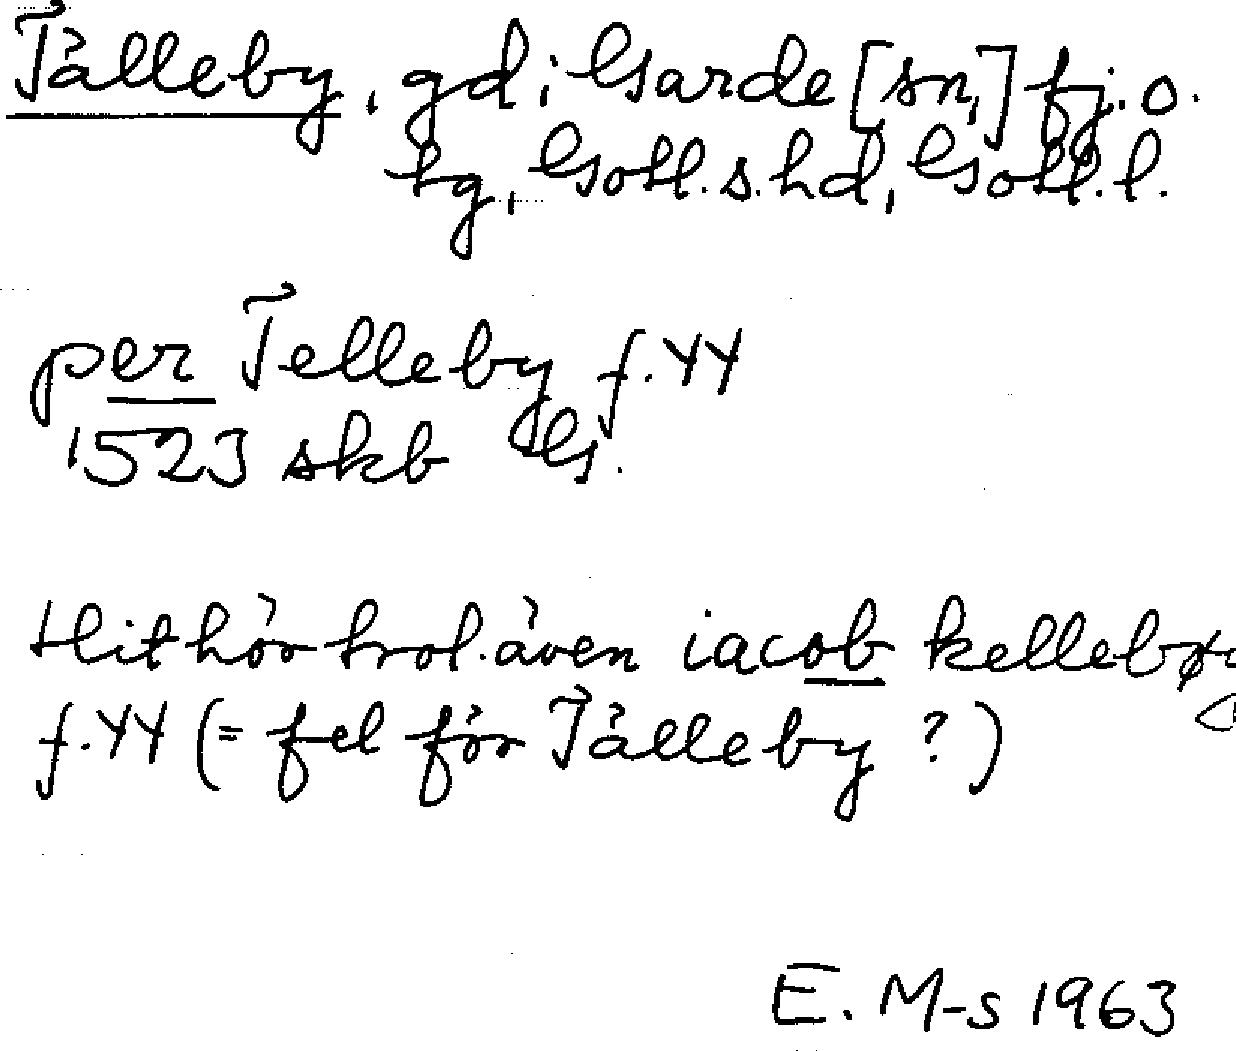 Tälleby, gd, Garde [sn,] fj. o.
tg, Gotl. s. hd, Gotl. l.
per Telleby f. 44
1523 skb G.
Hit hör trol. även iacob kelleby
f. 44 (= fel för Tälleby ?)
E. M-s 1963